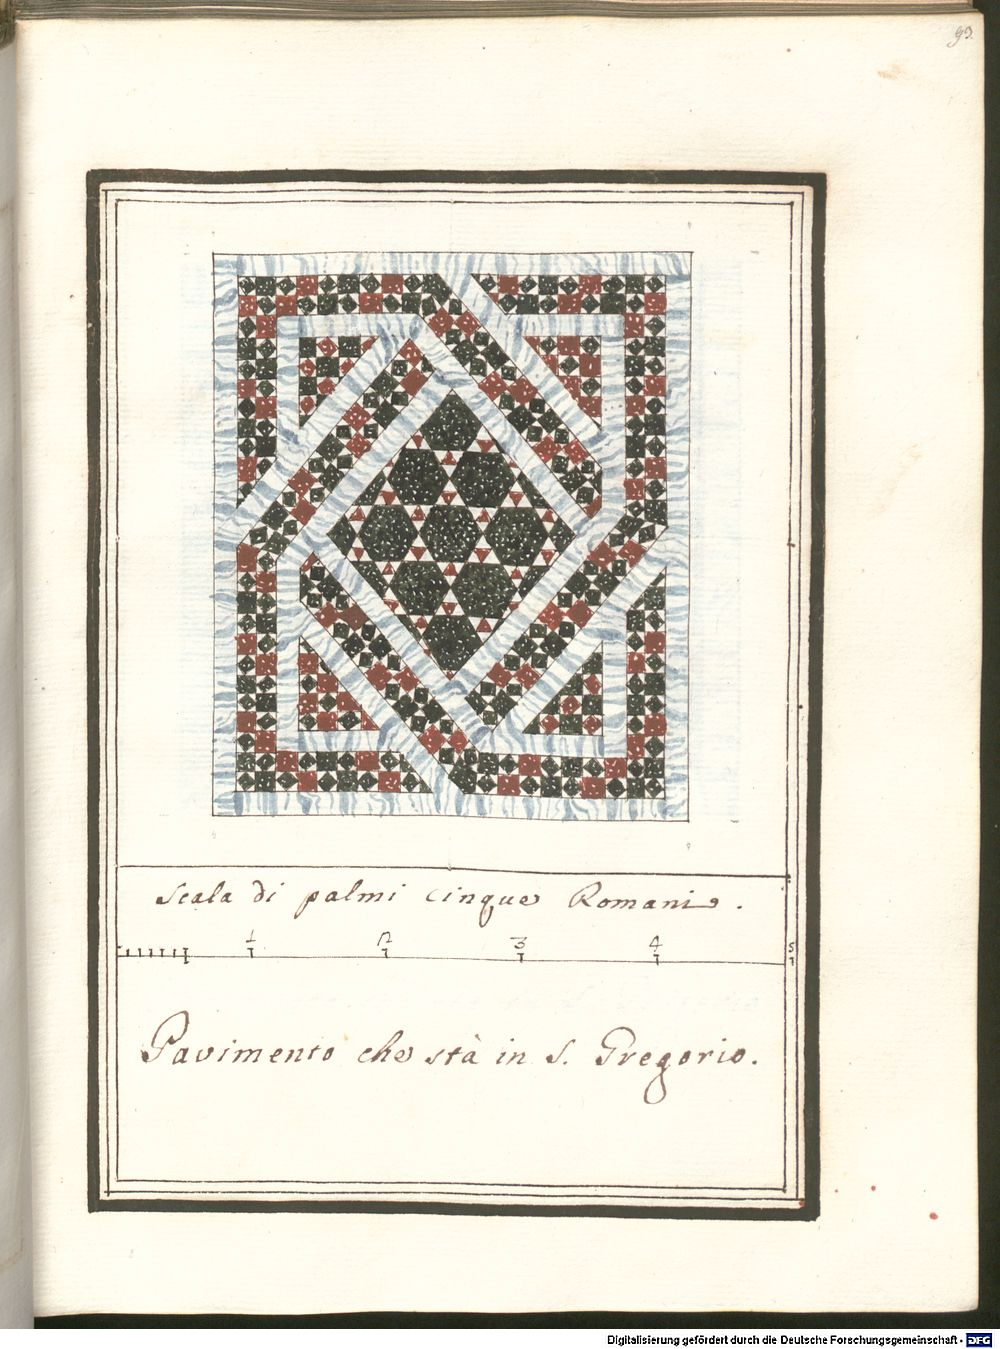 93.
Scala di palmi cinque Romani.
1 2 3 4 5
Pavimento che stà in S. Gregorio.
Digitalisierung gefördert durch die Deutsche Forschungsgemeinschaft - DFG